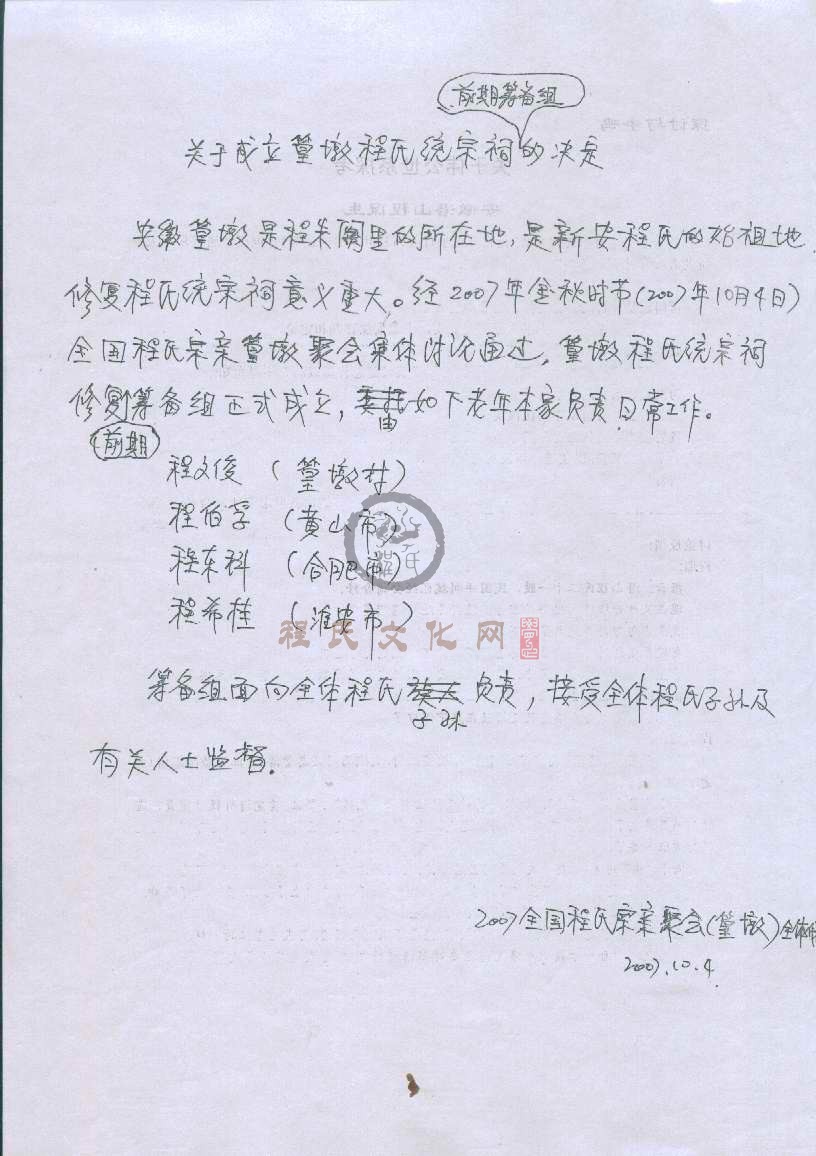 前期筹备组
关于成立篁墩程氏统宗祠的决定
安徽篁墩是程朱阙里的所在地,是新安程氏的始祖地,
修复程氏统宗祠意义重大。经2007年金秋时节(2007年10月4日)
全国程氏宗亲篁墩聚会集体讨论通过,篁墩程氏统宗祠
修复筹备组正式成立,委托如下老年本家负责日常工作。
前期
由
程文俊 (篁墩村)
程伯孚 (黄山市)
程东科 (合肥市)
程希桂 (淮安市)
程氏文化网
筹备组面向全体程氏负责,接受全体程氏子孙及
子孙
有关人士监督.
2007全国程氏宗亲聚会(篁墩)全体
2007.10.4